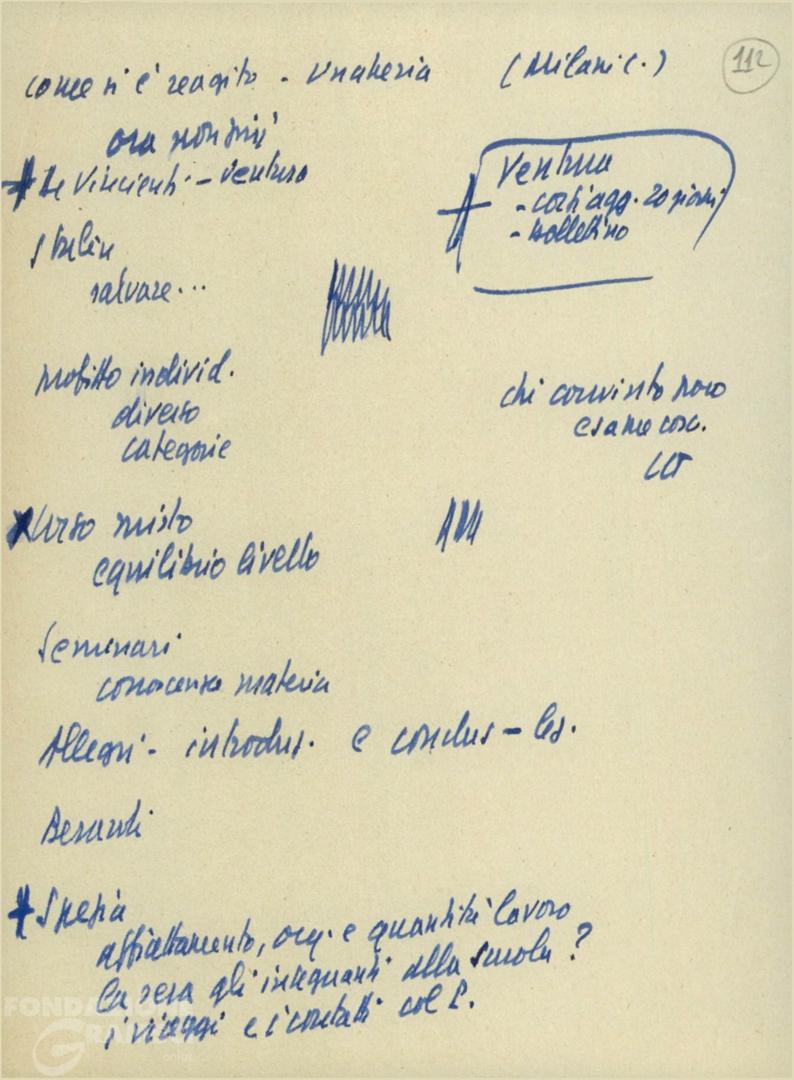 come si è reagito - Ungheria (Milani C.)
112
ora non più
De Vincienti - Ventura
Ventura
- corsi agg. 20 giorni
- bollettino
Stalin
salvare...
profitto individ.
diverso
categorie
chi convinto poco
esame cosc.
Corso misto
equilibrio livello
Seminari
conoscenza materia
Allegri - introduz. e conclus - lez.
Spezia
affiattamento, org. e quantità lavoro
la sera gli insegnanti alla scuola?
i viaggi e i contatti col P.
FONDAZIONE
GRAMSCI
onlus